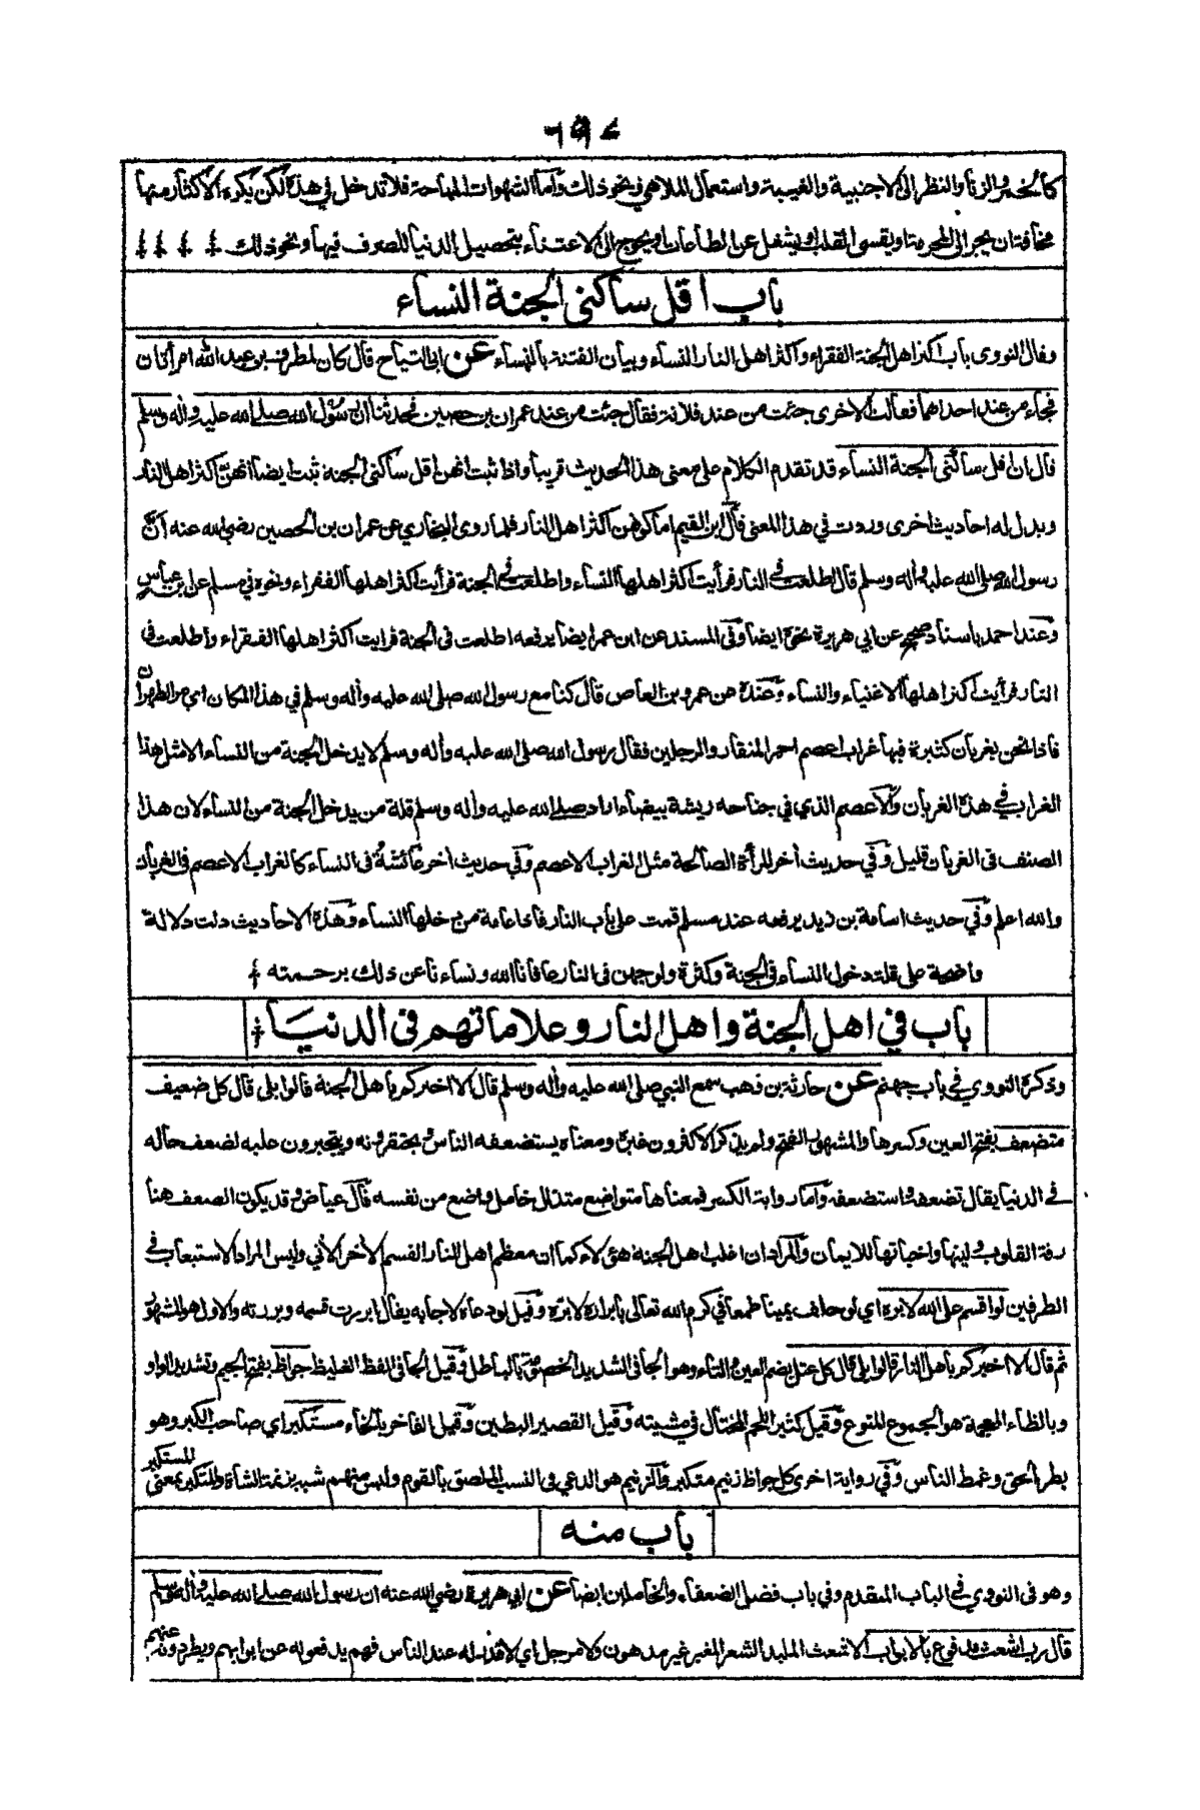 ٦٩٤
كالخمر والزنا والنظر الى الاجنبية والغيبة واستعمال الملاهي ونحو ذلك وأما الشهوات المباحة فلا تدخل في هذه لكن يكره الاكثار منها
مخافة ان يجر الى المحرمة او يقسى القلب او يشغل عن الطاعات او يحوج الى الاعتناء بتحصيل الدنيا للصرف فيها ونحو ذلك
باب اقل ساكنى الجنة النساء
وقال النووى باب اكثر اهل الجنة الفقراء واكثر اهل النار النساء وبيان الفتنة بالنساء عن ابى التياح قال كان لمطرف بن عبد الله امرأتان
فجاء من عند احداهما فقالت الاخرى جئت من عند فلانة فقال جئت من عند عمران بن حصين فحدثنا ان رسول الله صلى الله عليه واله وسلم
قال ان اقل ساكنى الجنة النساء قد تقدم الكلام على معنى هذا الحديث قريبا واذا ثبت انهن اقل ساكنى الجنة ثبت ايضا انهن اكثر اهل النار
ويدل له احاديث اخرى وردت في هذا المعنى قال ابن القيم اما كونهن اكثر اهل النار فلما روى البخاري عن عمران بن الحصين رضي الله عنه أن
رسول الله صلى الله عليه واله وسلم قال اطلعت في النار فرأيت اكثر اهلها النساء واطلعت في الجنة فرأيت اكثر اهلها الفقراء ونحوه في مسلم عن ابن عباس
وعند احمد باسناد صحيح عن ابي هريرة نحوه ايضا وفى المسند عن ابن عمر ايضا يرفعه اطلعت فى الجنة فرايت اكثر اهلها الفقراء واطلعت فى
النار فرأيت اكثر اهلها الاغنياء والنساء وعنده عن عمرو بن العاص قال كنا مع رسول الله صلى الله عليه واله وسلم في هذا المكان اي مر الظهران
فاذا نحن بغربان كثيرة فيها غراب اعصم احمر المنقار والرجلين فقال رسول الله صلى الله عليه واله وسلم لا يدخل الجنة من النساء الا مثل هذا
الغراب في هذه الغربان والاعصم الذي في جناحه ريشة بيضاء اراد صلى الله عليه واله وسلم قلة من يدخل الجنة من النساء لان هذا
الصنف فى الغربان قليل وفي حديث أخر المرأة الصالحة مثل الغراب الاعصم وفي حديث اخر عائشة فى النساء كالغراب الاعصم فى الغربان
والله اعلم وفي حديث اسامة بن زيد يرفعه عند مسلم قمت على باب النار فاذا عامة من دخلها النساء وهذه الاحاديث دلت دلالة
واضحة على قلة دخول النساء فى الجنة وكثرة ولوجهن فى النار عافانا الله ونساءنا عن ذلك برحمته
باب في اهل الجنة واهل النار وعلاماتهم فى الدنيا
وذكره النووي في باب جهنم عن حارثة بن وهب سمع النبي صلى الله عليه واله وسلم قال الا اخبركم باهل الجنة قالوا بلى قال كل ضعيف
متضعف بفتح العين وكسرها والمشهور الفتح ولم يذكر الاكثرون غيره ومعناه يستضعفه الناس ويحتقرونه ويتجبرون عليه لضعف حاله
في الدنيا يقال تضعفه واستضعفه وأما رواية الكسر فمعناها متواضع متذلل خامل واضع من نفسه قال عياض وقد يكون الضعف هنا
رقة القلوب ولينها واخباتها للايمان والمراد ان اغلب اهل الجنة هؤلاء كما ان معظم اهل النار القسم الاخر الأتي وليس المراد الاستيعاب في
الطرفين لو اقسم على الله لابره اي لو حلف يمينا طمعا في كرم الله تعالى بابراره لابره وقيل لو دعاه لاجابه يقال ابررت قسمه وبررته والاول هو المشهور
ثم قال الا اخبركم باهل النار قالوا بلى قال كل عتل بضم العين والتاء وهو الجافى الشديد الخصومة بالباطل وقيل الجافى الفظ الغليظ جواظ بفتح الجيم وتشديد الواو
وبالظاء المعجمة هو الجموع المنوع وقيل كثير اللحم المختال في مشيته وقيل القصير البطين وقيل الفاخر بالخاء مستكبر اي صاحب الكبر وهو
بطر الحق وغمط الناس وفي رواية اخرى كل جواظ زنيم متكبر والزنيم هو الدعي فى النسب الملصق بالقوم وليس منهم شبه بزنمة الشاة والمتكبر بمعنى المستكبر
باب منه
وهو فى النووي في الباب المتقدم وفي باب فضل الضعفاء والخاملين ايضا عن ابي هريرة رضي الله عنه ان رسول الله صلى الله عليه واله وسلم
قال رب اشعث مدفوع بالابواب الاشعث الملبد الشعر المغبر غير مدهون ولا مرجل اي لا قدر له عند الناس فهم يدفعونه عن ابوابهم ويطردونه عنهم